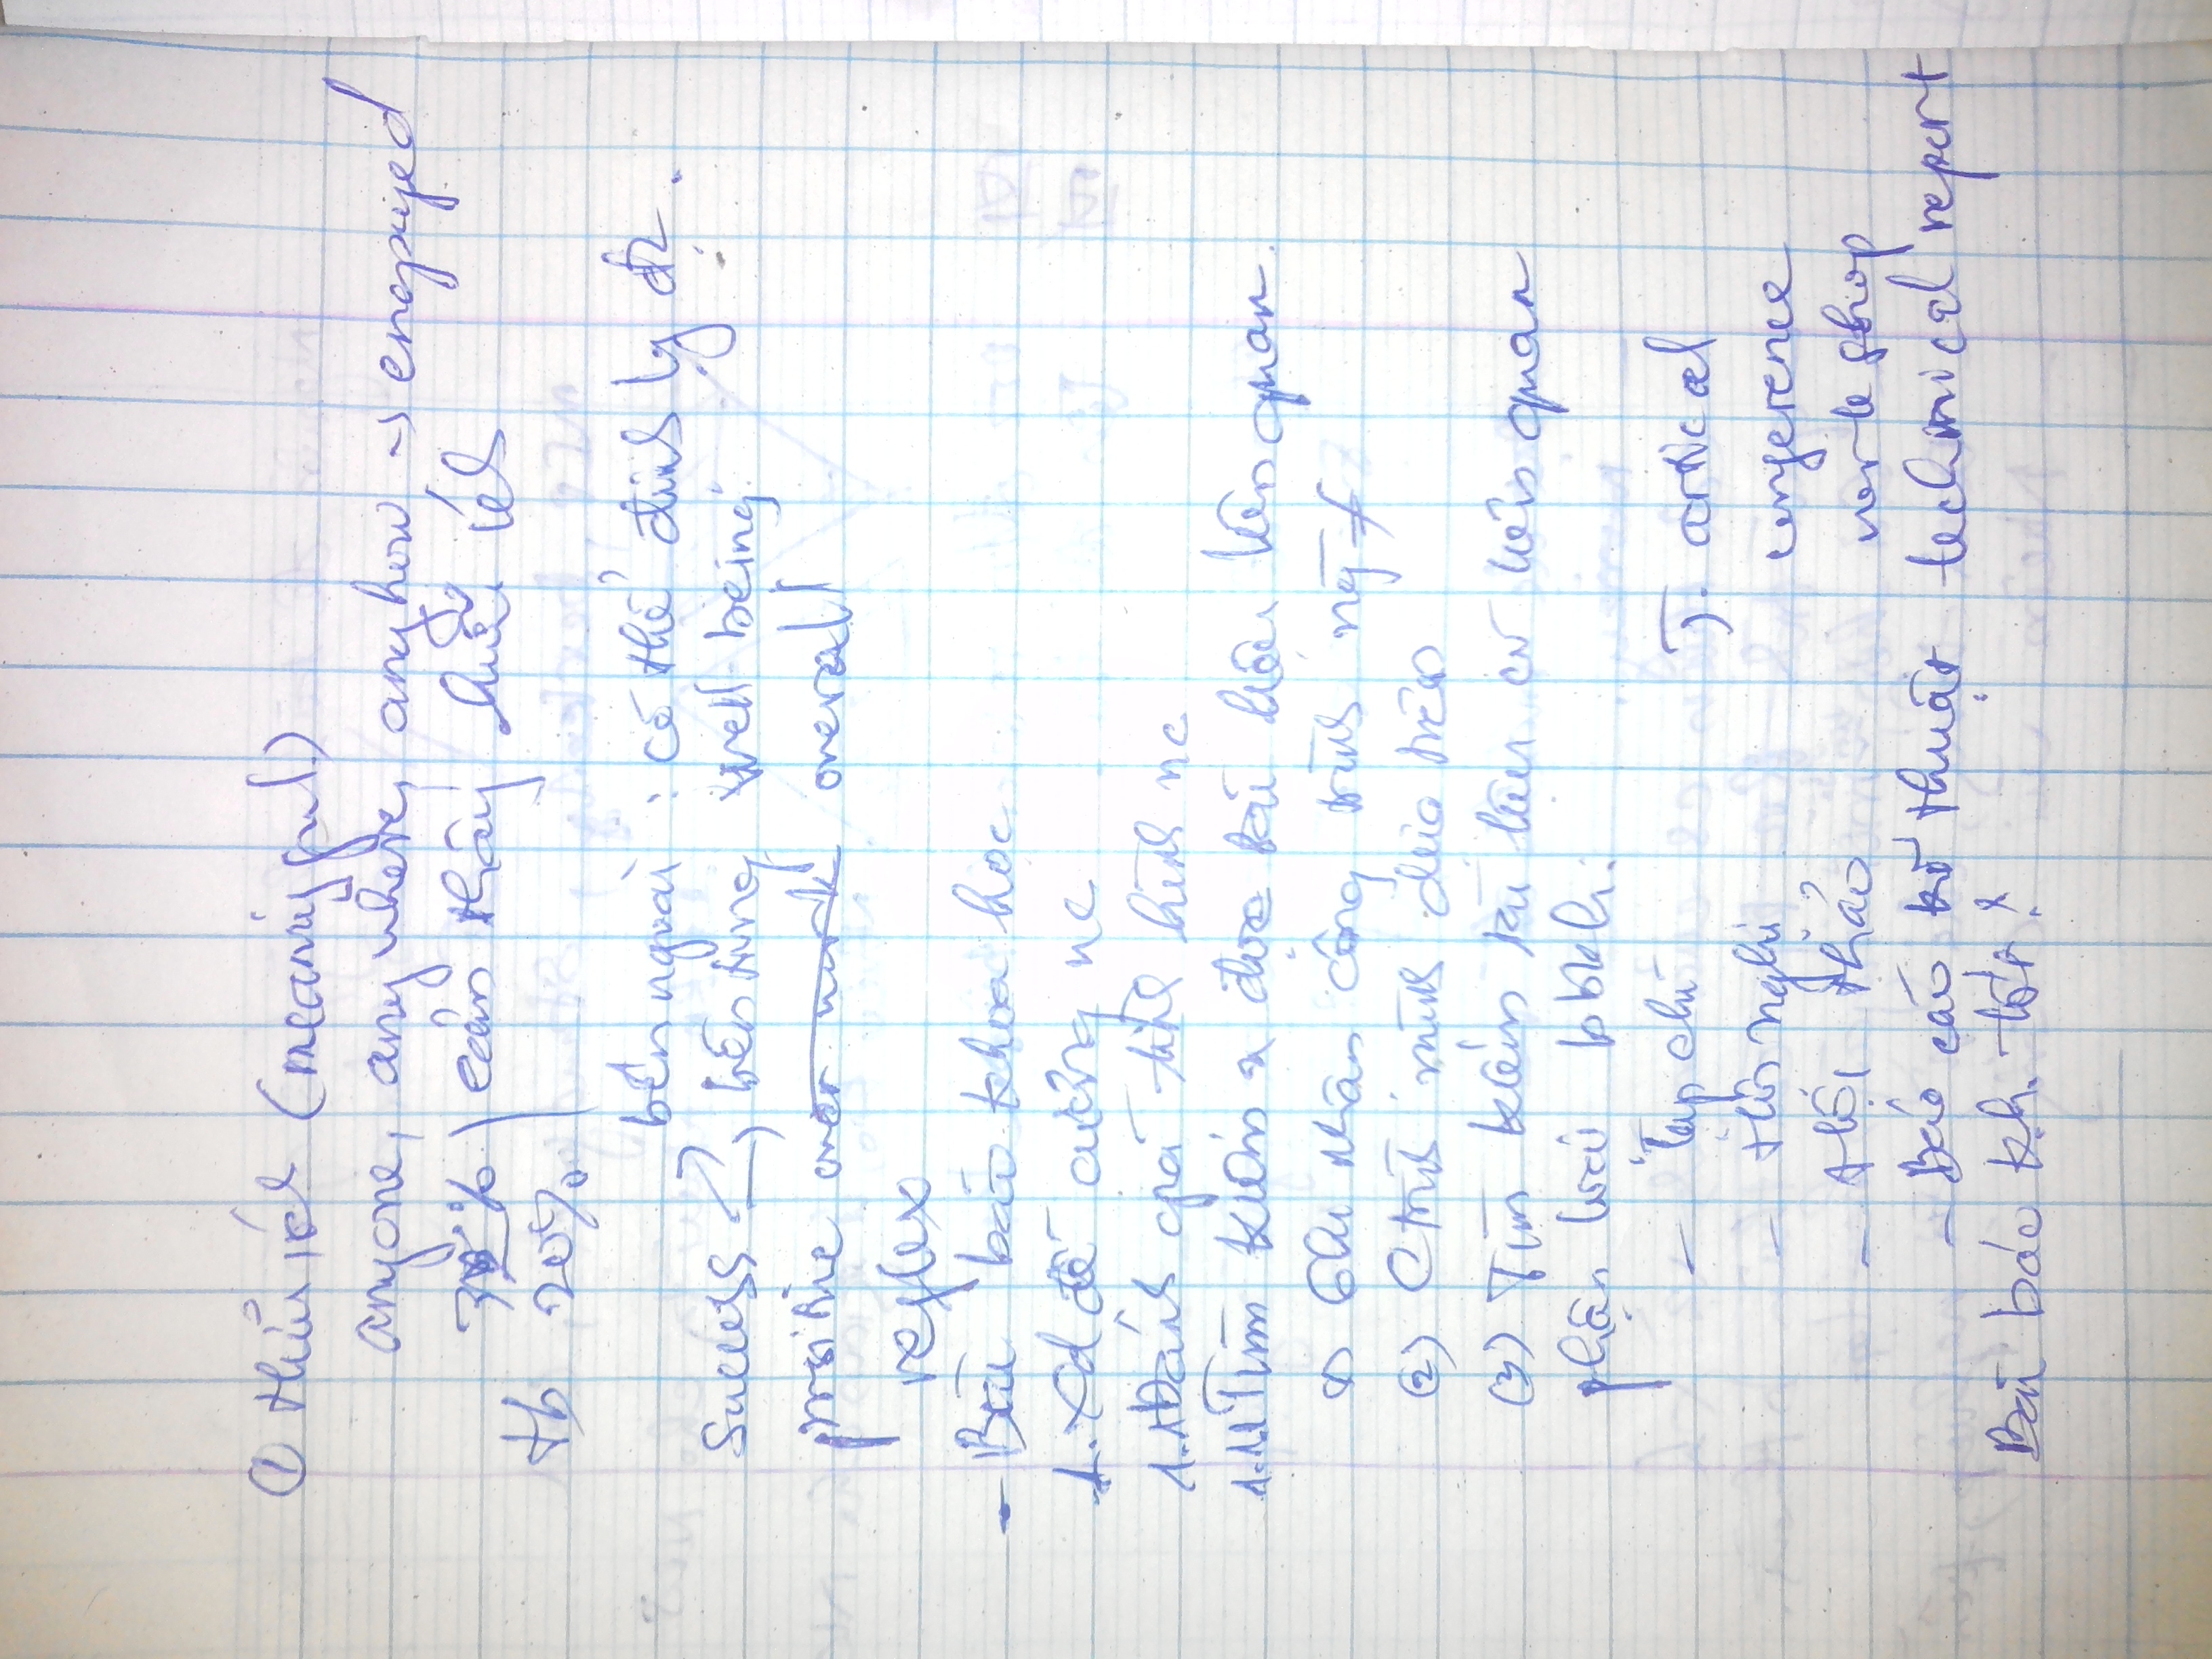 ① thấu ích (meaningful)
anyone, anywhere, anyhow → enojoyed
30% cảm thấy hữu ích
tb 20%
bên ngoài : có thể định ly đc.
Success → bên trong well-being
positive over work overall
reflex
- Bài báo khoa học
1. Xđ đề cương nc
1.1 Đánh giá tình hình nc
1.1.1 Tìm kiếm đọc tài liệu liên quan
Ghi nhận công trình ng
② Chính mình dựa trên
③ Tìm kiếm tài liệu có liên quan
phân loại bbkh:
- Tạp chí J. artical
- Hội nghị
- Hội thảo workshop
- Báo cáo kĩ thuật technical report
Bài báo kh tốt?